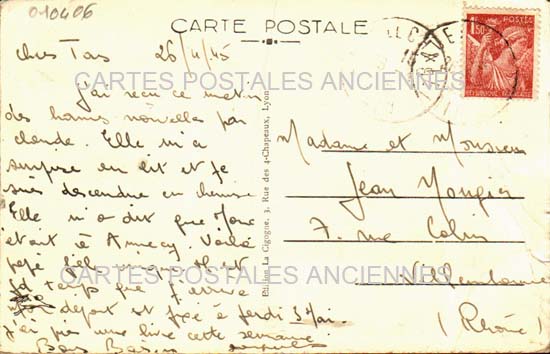 010406
CARTE POSTALE
Chers Tous 26/4/45
CARTES POSTALES ANCIENNES
J'ai reçu ce matin
des bonnes nouvelles par
claude. Elle m'a
surprise au lit et je
suis descendue en chemise
Elle m'a dit que
était à Annecy. Voilà
CARTES POSTALES ANCIENNES
temps que j'arrive
départ est fixé à jeudi 3 Mai.
j'ai pas une livre cette semaine
Bons Baisers
La Cigogne, 3, Rue des 4-Chapeaux, Lyon
POSTES
1F50
Madame et Monsieur
Jean Mongin
7, rue Colin
Villeurbanne
(Rhône)